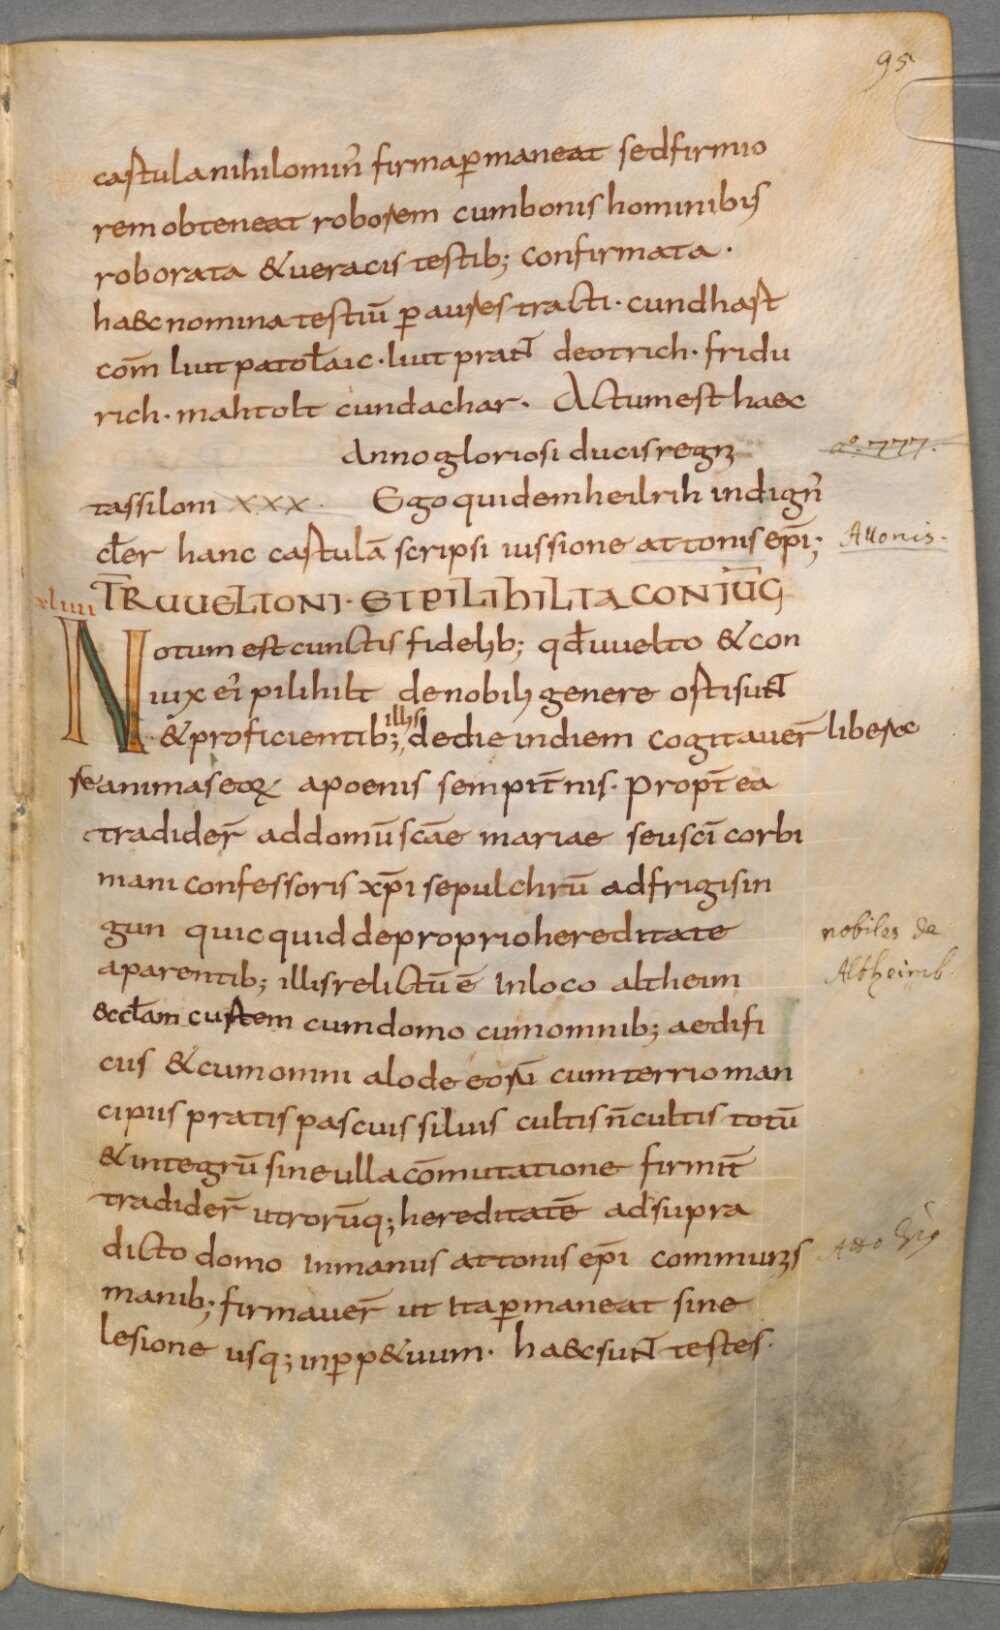 95
castula nihilomin̄ firma p̄maneat sed firmio
rem obteneat roborem cum bonis hominibus
roborata & veracis testib; confirmata ·
haec nomina testiū p̄ aures tracti · cundhast
com̄ liutpatolaic · liutprant deotrich · fridu
rich · mahtolt cundachar · Actum est haec
Anno gloriosi ducis regnū
a͡o. 777.
tassiloni XXX · Ego quidem heilrih indign̄
cl̄er hanc castulā scripsi iussione attonis ep̄i;
Attonis.
xliiii TR̄ UUELTONI · ET PILIHILTA CONJUG̅
Notum est cunctis fidelib; qd̄ uuelto & con
iux ei' pilihilt de nobili genere osti sunt
& proficientib; illis de die in diem cogitaver̄ liberare
se animas eor̄ a poenis sempit̄nis · Propt̄ea
tradider̄ ad domū sc̄ae mariae seu sc̄i corbi
niani confessoris xp̄i sepulchrū ad frigisin
gun quicquid de proprio hereditate
nobiles de
a parentib; illis relictū ē In loco altheim
Altheimb
eccl̄am custem cum domo cum omnib; aedifi
ciis & cum omni alode eorū cum terrio man
cipiis pratis pascuis silvis cultis n̄ cultis totū
& integrū sine ulla com̄utatione firmit̄
tradider̄ utrorūq; hereditatē ad supra
dicto domo In manus attonis ep̄i communis
Atto Ep̄s
manib; firmaver̄ ut ita p̄maneat sine
lesione usq; in p̄p&uum · haec sunt testes ·